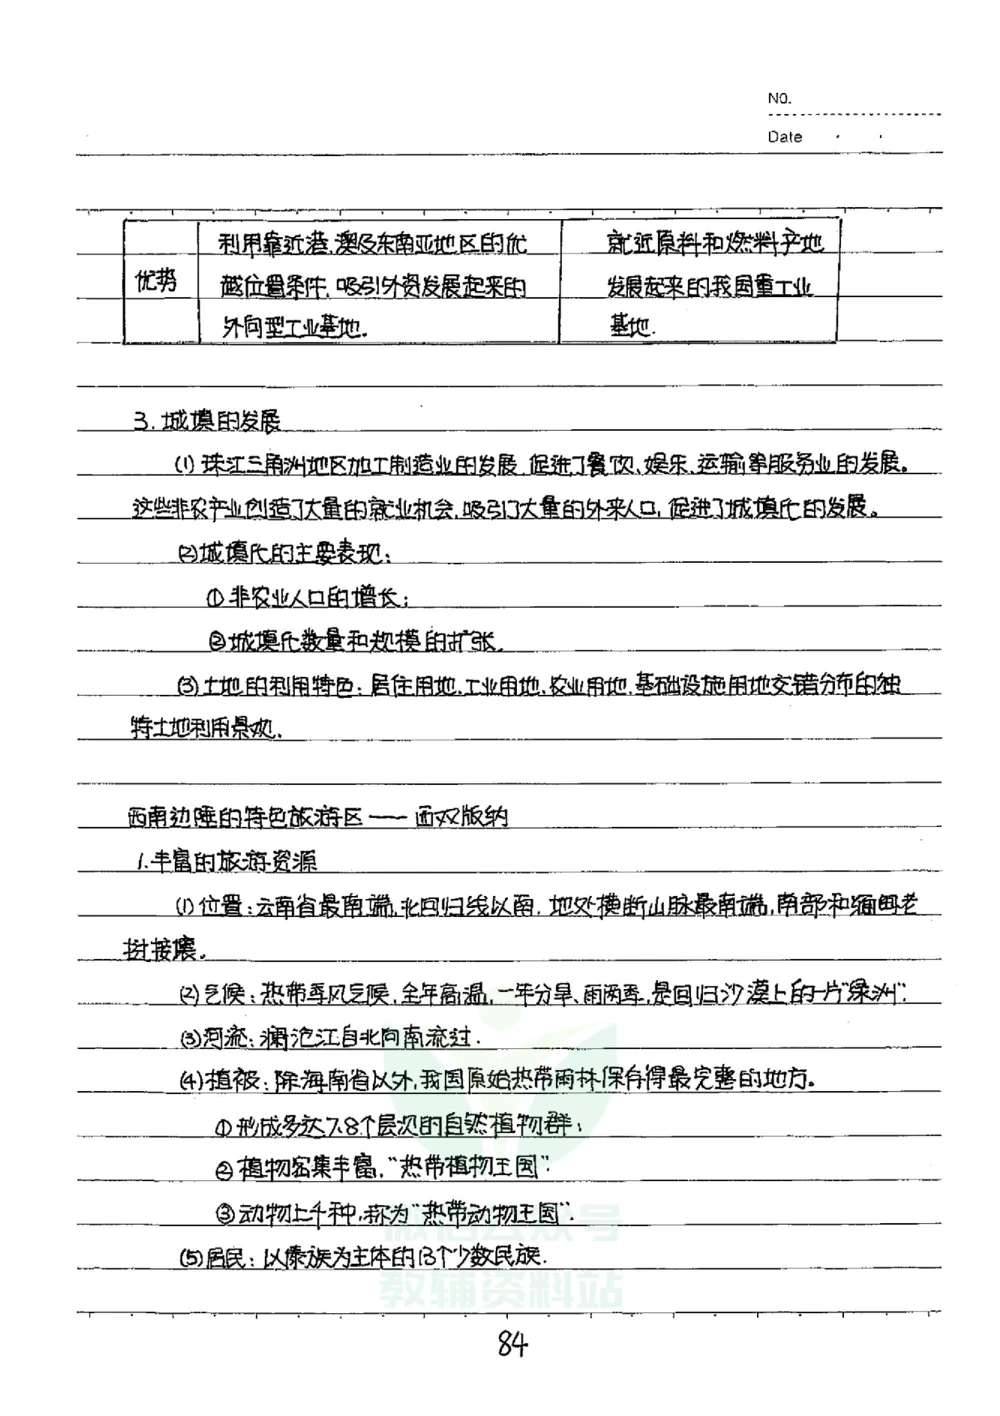 NO.
Date
优势
利用靠近港、澳及东南亚地区的优
越位置条件,吸引外资发展起来的
外向型工业基地.
就近原料和燃料产地
发展起来的我国重工业
基地.
3.城填的发展
(1)珠江三角洲地区加工制造业的发展,促进了餐饮、娱乐、运输等服务业的发展。
这些非农产业创造了大量的就业机会,吸引了大量的外来人口,促进了城填化的发展。
(2)城填化的主要表现:
①非农业人口的增长;
②城填化数量和规模的扩张.
(3)土地的利用特色:居住用地、工业用地、农业用地、基础设施用地交错分布的独
特土地利用景观.
西南边陲的特色旅游区——西双版纳
1.丰富的旅游资源
(1)位置:云南省最南端,北回归线以南,地处横断山脉最南端,南部和缅甸老
挝接壤。
(2)气候:热带季风气候,全年高温,一年分旱、雨两季,是回归沙漠上的一片"绿洲".
(3)河流:澜沧江自北向南流过.
(4)植被:除海南省以外,我国原始热带雨林保存得最完整的地方。
①形成多达7、8个层次的自然植物群;
②植物密集丰富,"热带植物王国".
③动物上千种,称为"热带动物王国".
(5)居民:以傣族为主体的13个少数民族.
微信公众号
教辅资料站
84